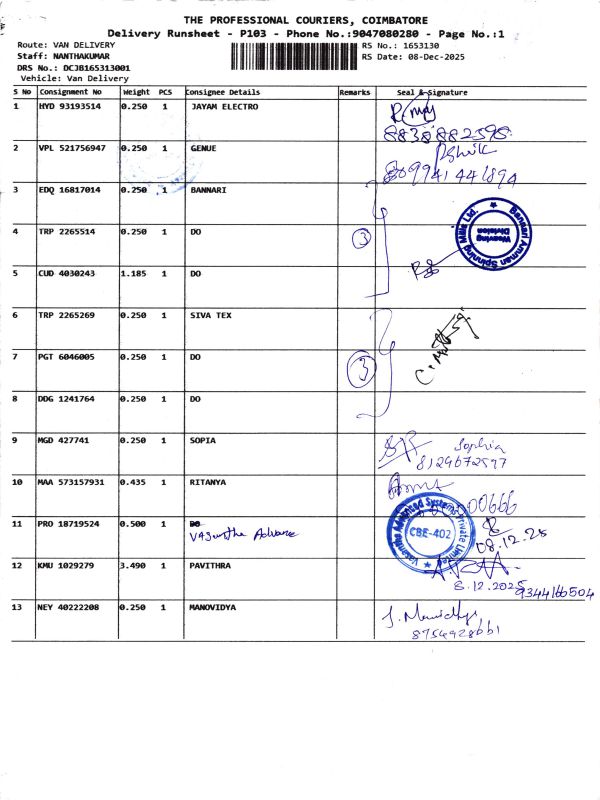 THE PROFESSIONAL COURIERS, COIMBATORE
Delivery Runsheet - P103 - Phone No.:9047080280 - Page No.:1
Route: VAN DELIVERY
RS No.: 1653130
Staff: NANTHAKUMAR
RS Date: 08-Dec-2025
DRS No.: DCJB165313001
Vehicle: Van Delivery
S No Consignment No Weight PCS Consignee Details Remarks Seal & Signature
1 HYD 93193514 0.250 1 JAYAM ELECTRO
8838882598
2 VPL 521756947 0.250 1 GENUE
809941441894
3 EDQ 16817014 0.250 1 BANNARI
Bannari Amman Spinning Mills Ltd.
Weaving Division
4 TRP 2265514 0.250 1 DO 3
5 CUD 4030243 1.185 1 DO
6 TRP 2265269 0.250 1 SIVA TEX
7 PGT 6046005 0.250 1 DO 3
8 DDG 1241764 0.250 1 DO
9 MGD 427741 0.250 1 SOPIA Sophia
8129672597
10 MAA 573157931 0.435 1 RITANYA
00666
11 PRO 18719524 0.500 1 DO
Vasantha Advance
Vasantha Advanced Systems Private Limited
CBE-402
08.12.25
12 KMU 1029279 3.490 1 PAVITHRA
8.12.2025
9344166504
13 NEY 40222208 0.250 1 MANOVIDYA
8754928661